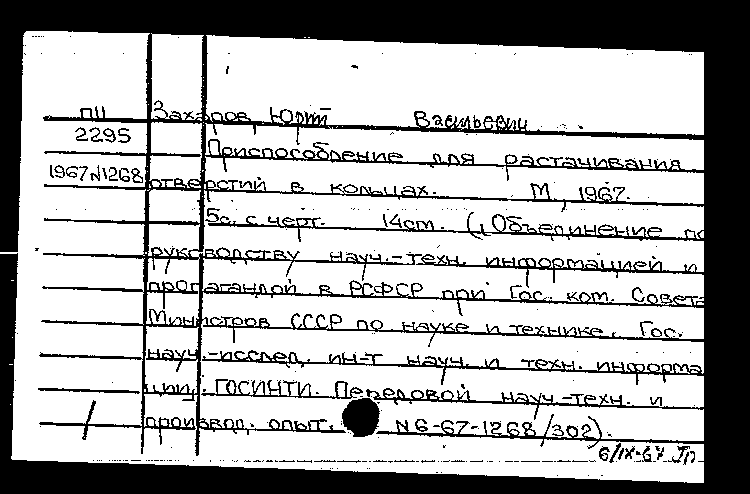 ПII Захаров, Юрий Васильевич
2295 Приспособление для растачивания
1967N1268 отверстий в кольцах. М., 1967.
5с. с черт. 14cm. („Объединение по
руководству науч.-техн. информацией и
пропагандой в РСФСР при Гос. ком. Совета
Министров СССР по науке и технике. Гос.
науч.-исслед. ин-т науч. и техн. информа
ции. ГОСИНТИ. Передовой науч.-техн. и
производ. опыт. N 6-67-1268/302).
6/IX-67